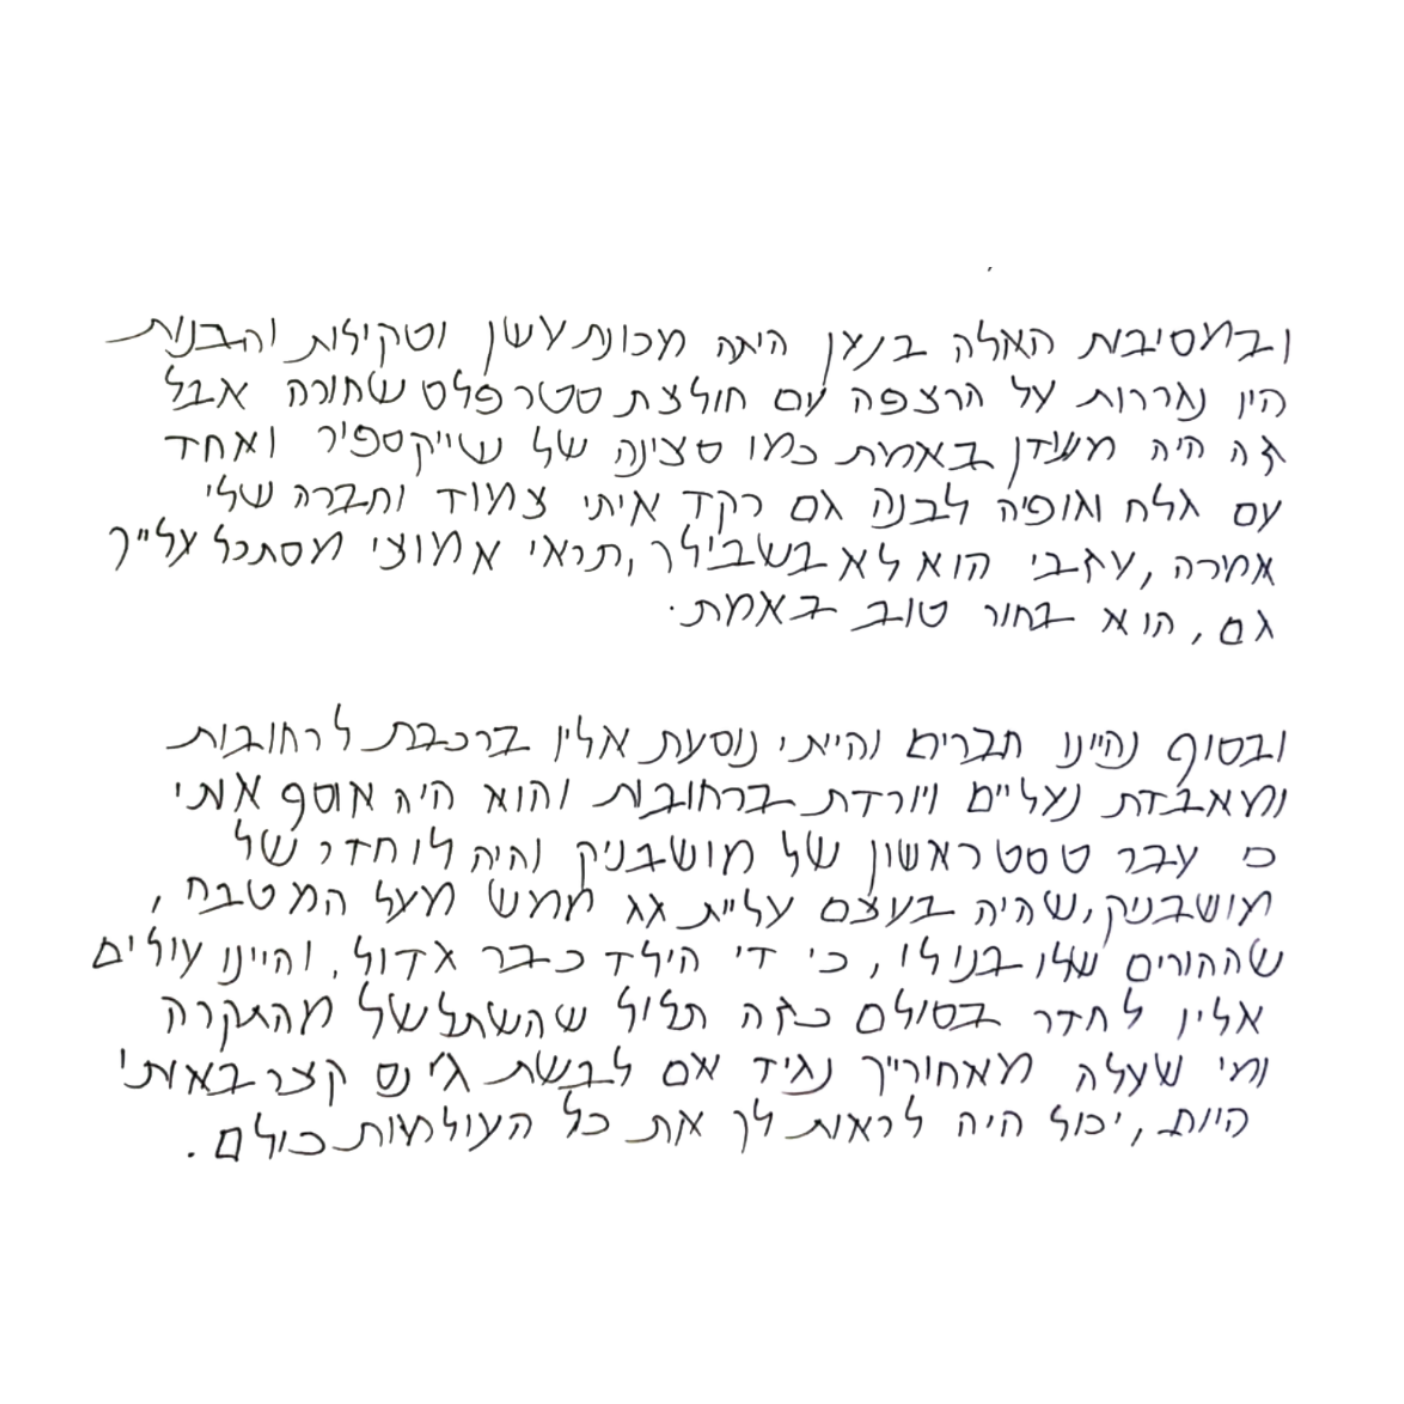 ובמסיבות האלה בנען היתה מכונת עשן וטקילות והבנות
היו נגררות על הרצפה עם חולצת סטרפלס שחורה אבל
זה היה מעודן באמת כמו סצינה של שייקספיר ואחד
עם גלח ואופיה לבנה גם רקד איתי צמוד וחברה שלי
אמרה, עזבי הוא לא בשבילך, תראי אמוצי מסתכל עלייך
גם, הוא בחור טוב באמת.
ובסוף נהיינו חברים והייתי נוסעת אליו ברכבת לרחובות
ומאבדת נעליים ויורדת ברחובות והוא היה אוסף אותי
כי עבר טסט ראשון של מושבניק והיה לו חדר של
מושבניק, שהיה בעצם עליית גג ממש מעל המטבח,
שההורים שלו בנו לו, כי די הילד כבר גדול, והיינו עולים
אליו לחדר בסולם כזה תלול שהשתלשל מהתקרה
ומי שעלה מאחורייך נגיד אם לבשת ג'ינס קצר באותי
היום, יכול היה לראות לך את כל העולמות כולם.